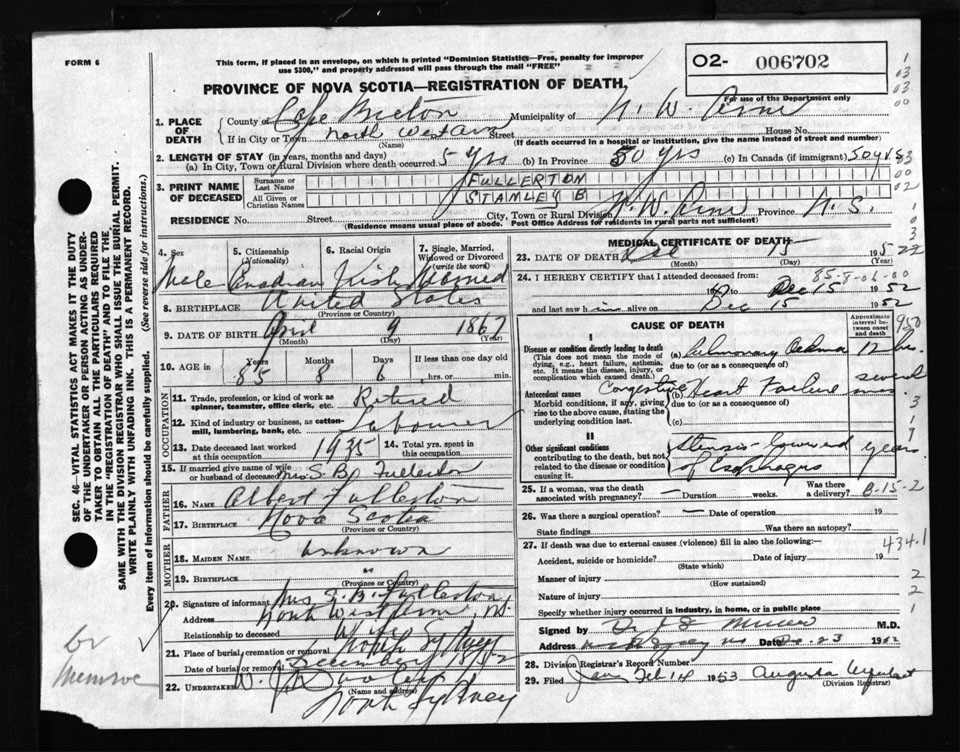 FORM 6
This form, if placed in an envelope, on which is printed "Dominion Statistics—Free, penalty for improper
use $300," and properly addressed will pass through the mail "FREE"
02- 006702
For use of the Department only
PROVINCE OF NOVA SCOTIA—REGISTRATION OF DEATH
1. PLACE OF DEATH
County of Cape Breton Municipality of N. W. Arm
If in City or Town North West Arm Street House No.
(Name) (If death occurred in a hospital or institution, give the name instead of street and number)
2. LENGTH OF STAY (in years, months and days)
(a) In City, Town or Rural Division where death occurred 5 yrs (b) In Province 50 yrs (c) In Canada (if immigrant) 50 yrs
3. PRINT NAME OF DECEASED
Surname or Last Name FULLERTON
All Given or Christian Names STANLEY B
RESIDENCE No. Street City, Town or Rural Division N. W. Arm Province N. S.
(Residence means usual place of abode. Post Office Address for residents in rural parts not sufficient)
4. Sex
Male
5. Citizenship (Nationality)
Canadian
6. Racial Origin
Irish
7. Single, Married, Widowed or Divorced (write the word)
Married
8. BIRTHPLACE United States
(Province or Country)
9. DATE OF BIRTH April 9 1867
(Month) (Day) (Year)
10. AGE in Years Months Days If less than one day old
85 8 6 hrs. or min.
OCCUPATION
11. Trade, profession, or kind of work as spinner, teamster, office clerk, etc. Retired
12. Kind of industry or business, as cotton-mill, lumbering, bank, etc. Labourer
13. Date deceased last worked at this occupation 1935
14. Total yrs. spent in this occupation
15. If married give name of wife or husband of deceased Mrs S. B. Fullerton
FATHER
16. NAME Albert Fullerton
17. BIRTHPLACE Nova Scotia
(Province or Country)
MOTHER
18. MAIDEN NAME unknown
19. BIRTHPLACE "
(Province or Country)
20. Signature of informant Mrs S. B. Fullerton
Address North West Arm N.S.
Relationship to deceased Wife
21. Place of burial, cremation or removal North Sydney
Date of burial or removal December 18/52
22. UNDERTAKER W. J.
(Name and address)
North Sydney
MEDICAL CERTIFICATE OF DEATH
23. DATE OF DEATH Dec 15 1952
(Month) (Day) (Year)
85-8-06-00
24. I HEREBY CERTIFY that I attended deceased from:
to Dec 15 1952
and last saw him alive on Dec 15 1952
CAUSE OF DEATH
Approximate interval between onset and death
I
Disease or condition directly leading to death
(This does not mean the mode of dying, e.g., heart failure, asthenia, etc. It means the disease, injury, or complication which caused death.)
(a) Pulmonary Oedema 12 hrs.
due to (or as a consequence of)
Antecedent causes
Morbid conditions, if any, giving rise to the above cause, stating the underlying condition last.
(b) Congestive Heart Failure several
due to (or as a consequence of)
(c)
II
Other significant conditions
contributing to the death, but not related to the disease or condition causing it.
Stenosis - lower end of Esophagus years
25. If a woman, was the death associated with pregnancy? — Duration weeks. Was there a delivery?
8-15-2
26. Was there a surgical operation? — Date of operation 19
State findings Was there an autopsy?
434.1
27. If death was due to external causes (violence) fill in also the following:
Accident, suicide or homicide? Date of injury 19
(State which)
Manner of injury
(How sustained)
Nature of injury
Specify whether injury occurred in industry, in home, or in public place
Signed by M.D.
Address Date Dec. 23 1952
28. Division Registrar's Record Number
29. Filed Feb 14 1953 Augusta
(Division Registrar)
SEC. 46—VITAL STATISTICS ACT MAKES IT THE DUTY
OF THE UNDERTAKER OR PERSON ACTING AS UNDER-
TAKER TO OBTAIN ALL THE PARTICULARS REQUIRED
IN THE "REGISTRATION OF DEATH" AND TO FILE THE
SAME WITH THE DIVISION REGISTRAR WHO SHALL ISSUE THE BURIAL PERMIT.
WRITE PLAINLY WITH UNFADING INK. THIS IS A PERMANENT RECORD.
Every item of information should be carefully supplied. (See reverse side for instructions.)
Munroe